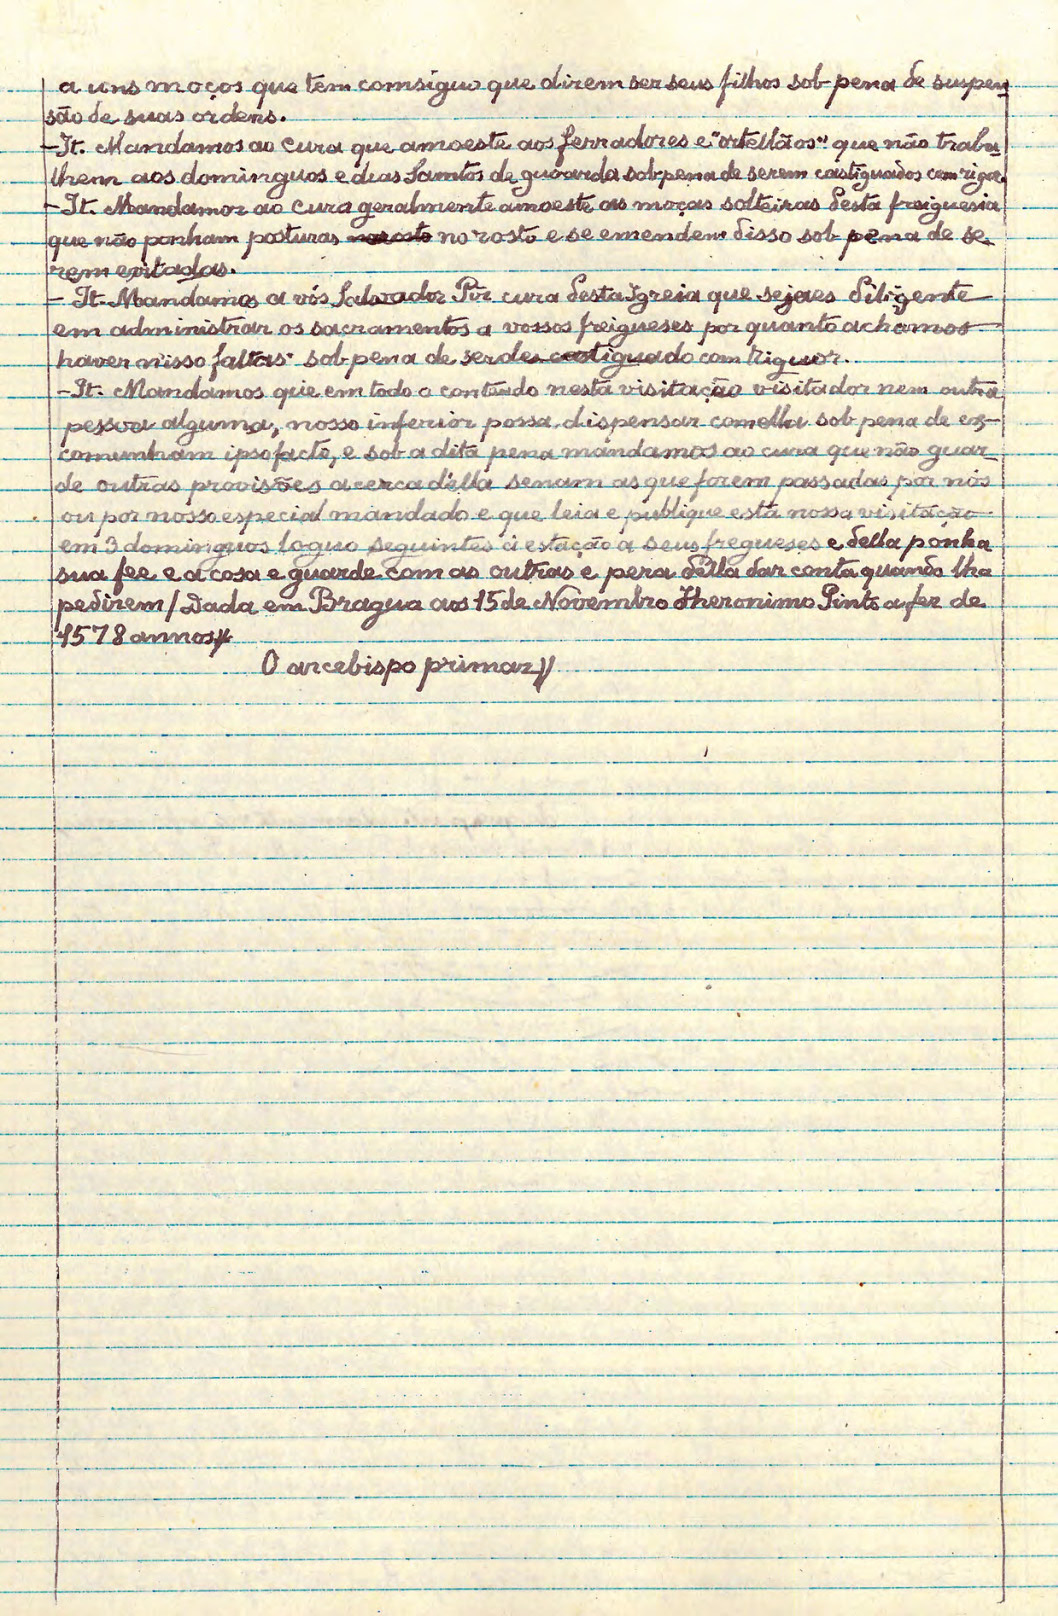 a uns moços que tem comsiguo que dizem ser seus filhos sob pena de suspen
são de suas ordens.
- It. Mandamos ao cura que amoeste aos ferradores e "ortellãos" que não traba
lhem aos dominguos e dias Santos de guoarda sob pena de serem castiguados com rigor.
- It. Mandamos ao cura geralmente amoeste as moças solteiras desta freiguesia
que não ponham posturas no rosto e se emendem disso sob pena de se-
rem evitadas.
- It. Mandamos a vós Salvador Pir cura desta Igreia que sejaes diligente
em administrar os sacramentos a vossos freigueses por quanto achamos
haver nisso faltas sob pena de serdes castiguado com riguor.
- It. Mandamos que em todo o conteudo nesta visitação visitador nem outra
pessoa alguma, nosso inferior possa dispensar com ella sob pena de ex-
comunham ipso facto, e sob a dita pena mandamos ao cura que não guar_
de outras provisões acerca d'ella senam as que forem passadas por nós
ou por nosso especial mandado e que leia e publique esta nossa visitação
em 3 dominguos loguo seguintes á estação a seus fregueses e della ponha
sua fee e a cosa e guarde com as outras e pera d'ella dar conta quando lha
pedirem / Dada em Bragua aos 15 de Novembro Iheronimo Pinto a fez de
1578 annos //
O arcebispo primaz //